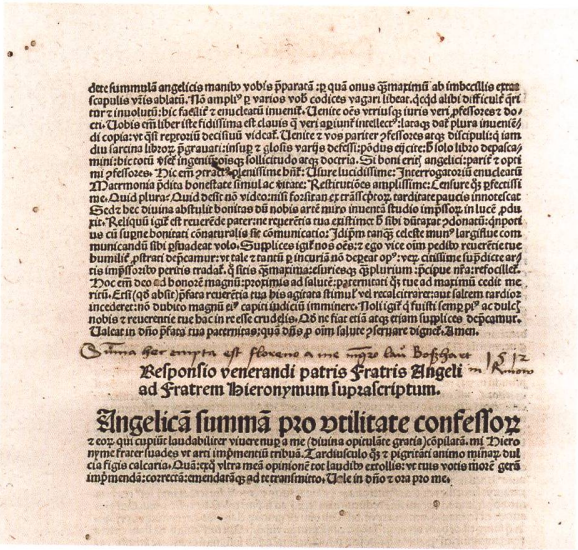 dere summulā angelicis manibꝰ vobis p̄paratā : ꝑ quā onus ꝙ̄maximū ab imbecillis
scapulis vr̄is ablatū. Nā ampliꝰ ꝑ varios vob̄ codices vagari libeat. qcqd alibi difficule qri
tur ⁊ inuolutū: hic facil'r ⁊ enucleatū inuenit. Uenite oēs vtriusqꝫ iuris veri ꝓfessores ⁊ do⸗
cti. Uobis em̄ liber iste fidissima est clauis
di copia: vt qsi reꝑtoriū decisiuū videat. Uenite ⁊ vos pariter ꝓfessores atqꝫ discipuli: q iam
diu sarcina libroꝝ p̄grauati: insuꝑ ⁊ glosis varijs defessi: pōdus eijcite: ħ solo libro
mini: hic totū ingeniū oisqꝫ sollicitudo atqꝫ doctria. Si boni eritis angelici: parit̄ ⁊ opti
mi ꝓfessores. Hic em̄ ꝯtract plenissime hn̄t: Usure lucidissime: Interrogatoriū enucleatū
Matrimonia p̄dita honestate simul ac vtitate: Restitutiōes amplissime: Cēsure ꝙ̄ ꝑfectissi
me. Quid plura? Quid desit nō video: nisi forsitan ex
Sed ⁊ hec diuina abstulit bonitas dū nobis artē miro inuenta studio imp̄ssoꝝ in lucē ꝓda
xit. Reliquū igit̄ est reuerēde pater ne reuerētia tua existimet ħ sibi dūtaxat
us cū suꝑne bonitati cōnaturalis sit cōmunicatio: Idip̄m tanqꝫ celeste munꝰ largiflue com
municandū sibi ꝑsuadeat volo. Supplices igit̄ nos oēs: ⁊ ego vice oim̄ pedibꝰ reuerētie tue
humilit̄ ꝓstrati dep̄camur: vt tale ⁊ tantū ꝑ incuriā nō deꝑeat opꝰ: veꝝ citissime sup̄dicte ar⸗
tis imp̄ssoribꝰ peritis tradat̄.
Hoc em̄ deo ad honorē magnū: proximis ad salutē: paternitati q̄ꝫ tue ad maximū cedit me
ritū. Etsi (qd̄ absit) p̄fata reuerētia tua his agitata stimul' vel recalcitraret: aut saltem tardior
incederet: nō dubito magnū ei' capiti iudiciū imminere. Nolit igit̄ q̄ fuit semꝑ piꝰ ac dulcꝰ
nobis ⁊ reuerentie tue hac in re esse crudelis. Qd̄ ne fiat etiā atqꝫ etiam supplices dep̄camur.
Ualeat in dn̄o p̄fata tua paternitas: quā dn̄s ꝓ oim̄ salute ꝓseruare dignet̄. Amen.
Sum̄a hec empta est floreno a me mgr̄o lau Boßhart 1512
Responsio venerandi patris Fratris Angeli
ad Fratrem Hieronymum suprascriptum.
Angelicā summā pro vtilitate confessoꝝ
⁊ eoꝝ qui cupiūt laudabiliter viuere nuꝑ a me (diuina opitulāte gratia) cōpilatā. mi Hiero
nyme frater suades vt arti imp̄mentiū tribuā. Tardiusculo q̄ꝫ ⁊ pigritāti animo minaꝝ dul
cia figis calcaria. Quā: etqꝫ vltra meā opinionē tot laudibꝰ extollis: vt tuis votis morē gerā
imp̄mendā: correctā: emendatāqꝫ ad te transmitto. Uale in dn̄o ⁊ ora pro me.